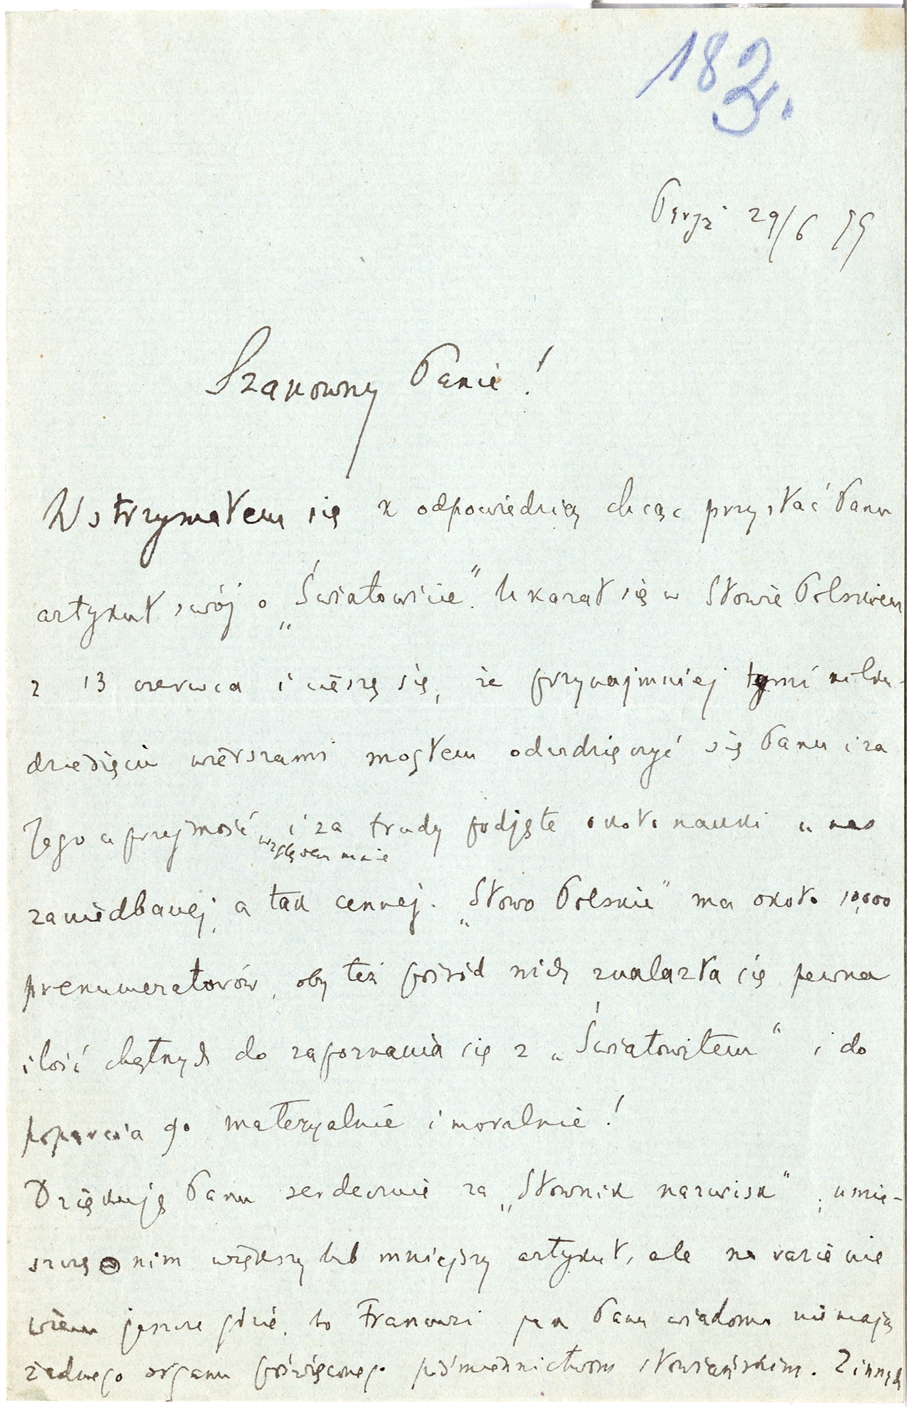 183.
Paryż 29/6 99
Szanowny Panie!
Wstrzymałem się z odpowiedzią chcąc przysłać Panu
artykuł swój o „Światowicie”. Ukazał się w Słowie Polskiem
z 13 czerwca i cieszę się, że przynajmniej tymi kilku-
dziesięciu wierszami mogłem odwdzięczyć się Panu i za
Jego uprzejmość względem mnie i za trudy podjęte około nauki u nas
zaniedbanej, a tak cennej. „Słowo Polskie” ma około 10,000
prenumeratorów, oby też pośród nich znalazła się pewna
ilość chętnych do zapoznania się z „Światowitem” i do
poparcia go materyalnie i moralnie!
Dziękuję Panu serdecznie za „Słownik nazwisk”, umie-
szczę o nim większy lub mniejszy artykuł, ale na razie nie
wiem jeszcze gdzie, bo Francuzi jak Panu wiadomo nie mają
żadnego organu poświęconego piśmiennictwom słowiańskim. Z innych